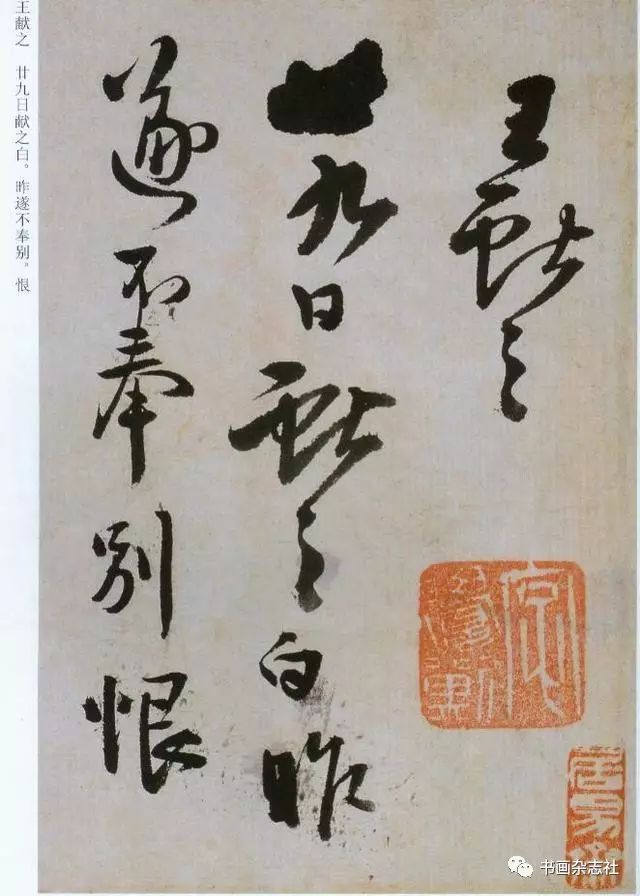 王献之
廿九日献之白昨
遂不奉别恨
王献之 廿九日献之白。昨遂不奉别。恨
书画杂志社